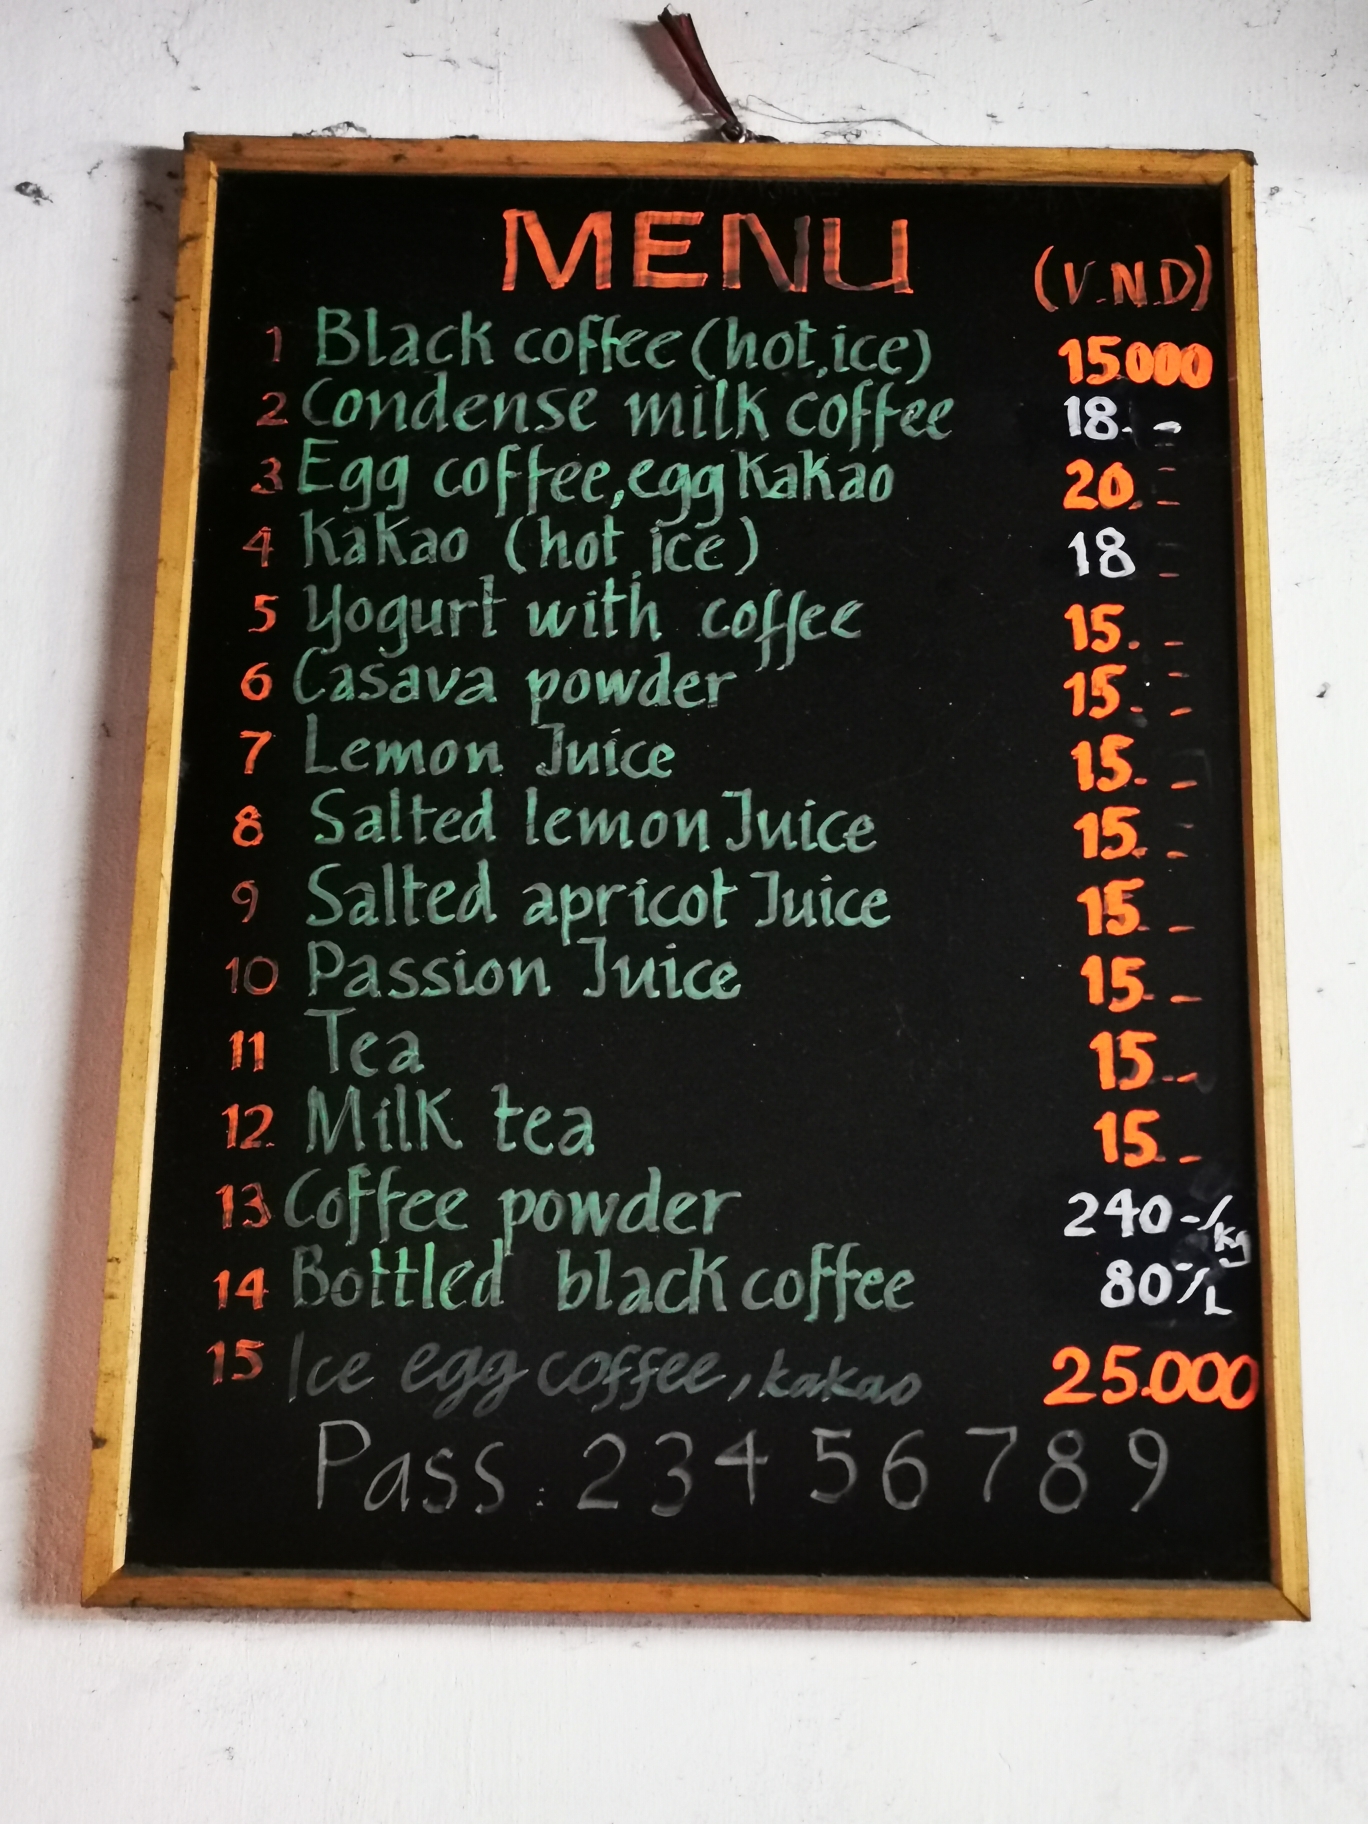 MENU (V.N.D)
1 Black coffee (hot, ice) 15000
2 Condense milk coffee 18. -
3 Egg coffee, egg Kakao 20. -
4 Kakao (hot, ice) 18 -
5 Yogurt with coffee 15. -
6 Casava powder 15. -
7 Lemon Juice 15. -
8 Salted lemon Juice 15. -
9 Salted apricot Juice 15. -
10 Passion Juice 15. -
11 Tea 15. -
12 Milk tea 15. -
13 Coffee powder 240-/kg
14 Bottled black coffee 80-/L
15 Ice egg coffee, kakao 25.000
Pass: 23456789